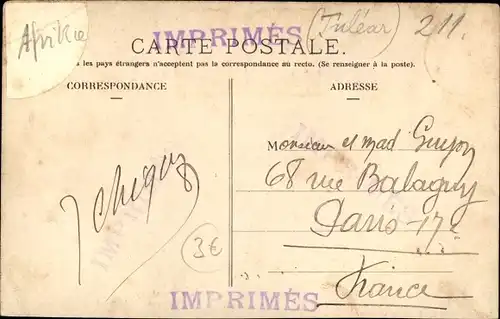 Afrika
IMPRIMÉS
(Tuléar)
211.
CARTE POSTALE.
les pays étrangers n'acceptent pas la correspondance au recto. (Se renseigner à la poste).
CORRESPONDANCE
ADRESSE
Monsieur et mad Guyon
68 rue Balagny
Paris 17e
France
3€
IMPRIMÉS